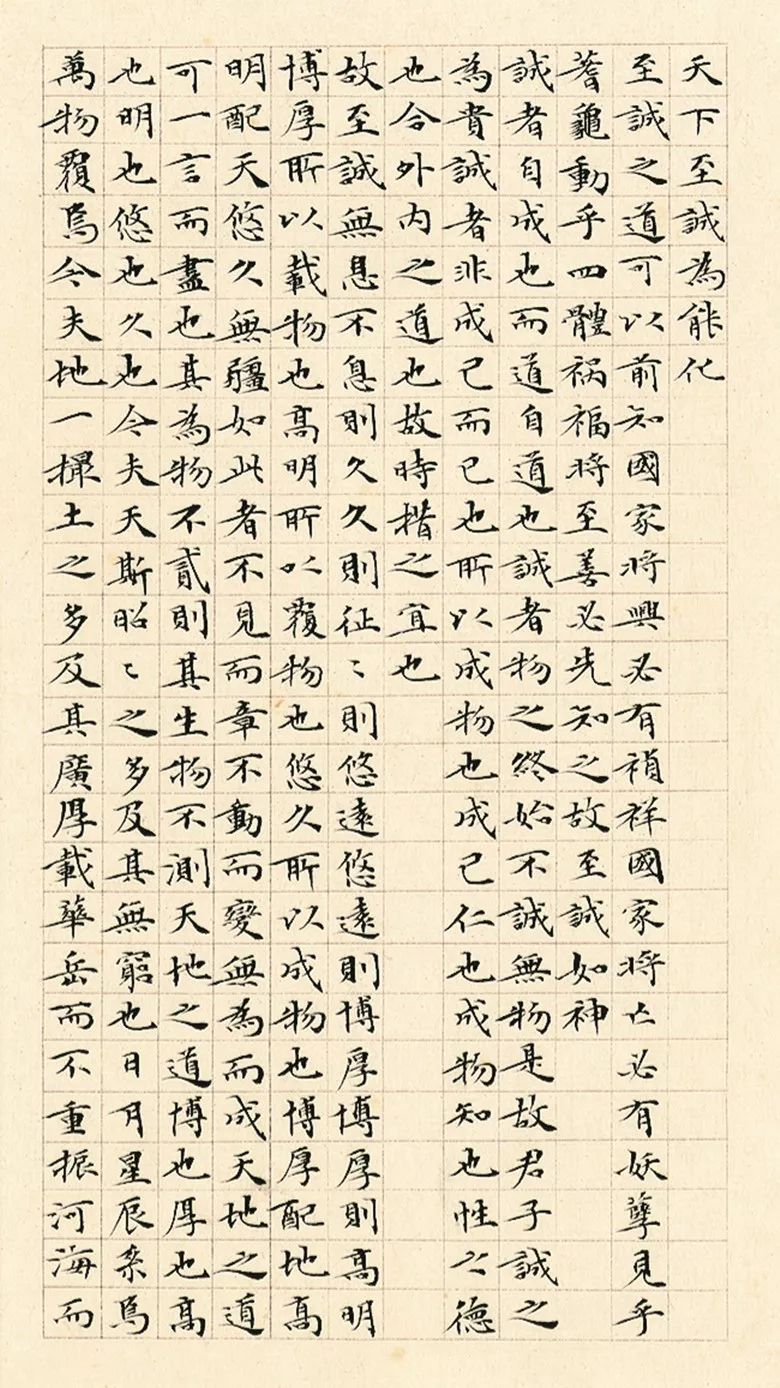 天下至誠為能化
至誠之道可以前知國家將興必有禎祥國家將亡必有妖孽見乎
蓍龜動乎四體祸福將至善必先知之故至誠如神
誠者自成也而道自道也誠者物之終始不誠無物是故君子誠之
為貴誠者非成己而已也所以成物也成己仁也成物知也性之德
也合外内之道也故時措之宜也
故至誠無息不息則久久則征〻則悠遠悠遠則博厚博厚則高明
博厚所以載物也高明所以覆物也悠久所以成物也博厚配地高
明配天悠久無疆如此者不見而章不動而變無為而成天地之道
可一言而盡也其為物不貳則其生物不測天地之道博也厚也高
也明也悠也久也今夫天斯昭〻之多及其無窮也日月星辰系焉
萬物覆焉今夫地一撮土之多及其廣厚載華岳而不重振河海而